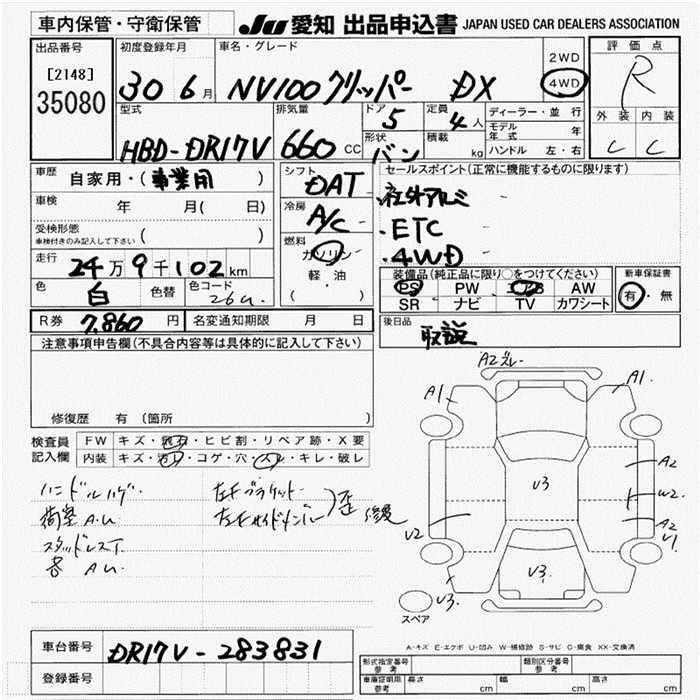 車内保管・守衛保管
JU 愛知 出品申込書 JAPAN USED CAR DEALERS ASSOCIATION
出品番号
[2148]
35080
初度登録年月
30 6月
車名・グレード
NV100クリッパー DX
2WD
4WD
評価点
R
外装 内装
C C
型式
HBD-DR17V
排気量
660 CC
ドア
5
形状
バン
定員
4人
積載
kg
ディーラー・並行
モデル年式 年
ハンドル 左・右
車歴
自家用・(事業用)
車検
年 月( 日)
受検形態
車検付きのみ記入して下さい ( )
走行
24万9千102km
色
白
色替
色コード
26U
シフト
DAT
冷房
A/C
燃料
ガソリン
軽油
( ・ )
セールスポイント(正常に機能するものに限ります)
・社外アルミ
・ETC
・4WD
装備品(純正品に限り○をつけてください)
PS PW AW
SR ナビ TV カワシート
新車保証書
有・無
R券 7,860円
名変通知期限 月 日
後日品
取説
注意事項申告欄(不具合内容等は具体的に記入して下さい)
修復歴 有 (箇所 )
検査員
記入欄
FW キズ・飛石・ヒビ割・リペア跡・X要
内装 キズ・汚レ・コゲ・穴・スレ・キレ・破レ
ハンドルハゲ・
荷室A.U
スタッドレスT
各AU
左Fブラケット
左Fサイドメンバー
歪 修復
A2
A1
A1.
A2
W2.
A2
V1
V3
V2
V3.
V3.
スペア
A-キズ E-エクボ U-凹み W-補修跡 S-サビ C-腐食 XX-交換済
車台番号
DR17V-283831
登録番号
形式指定番号
参考
類別区分番号
参考
車庫証明用
参考
長さ cm
幅 cm
高さ cm